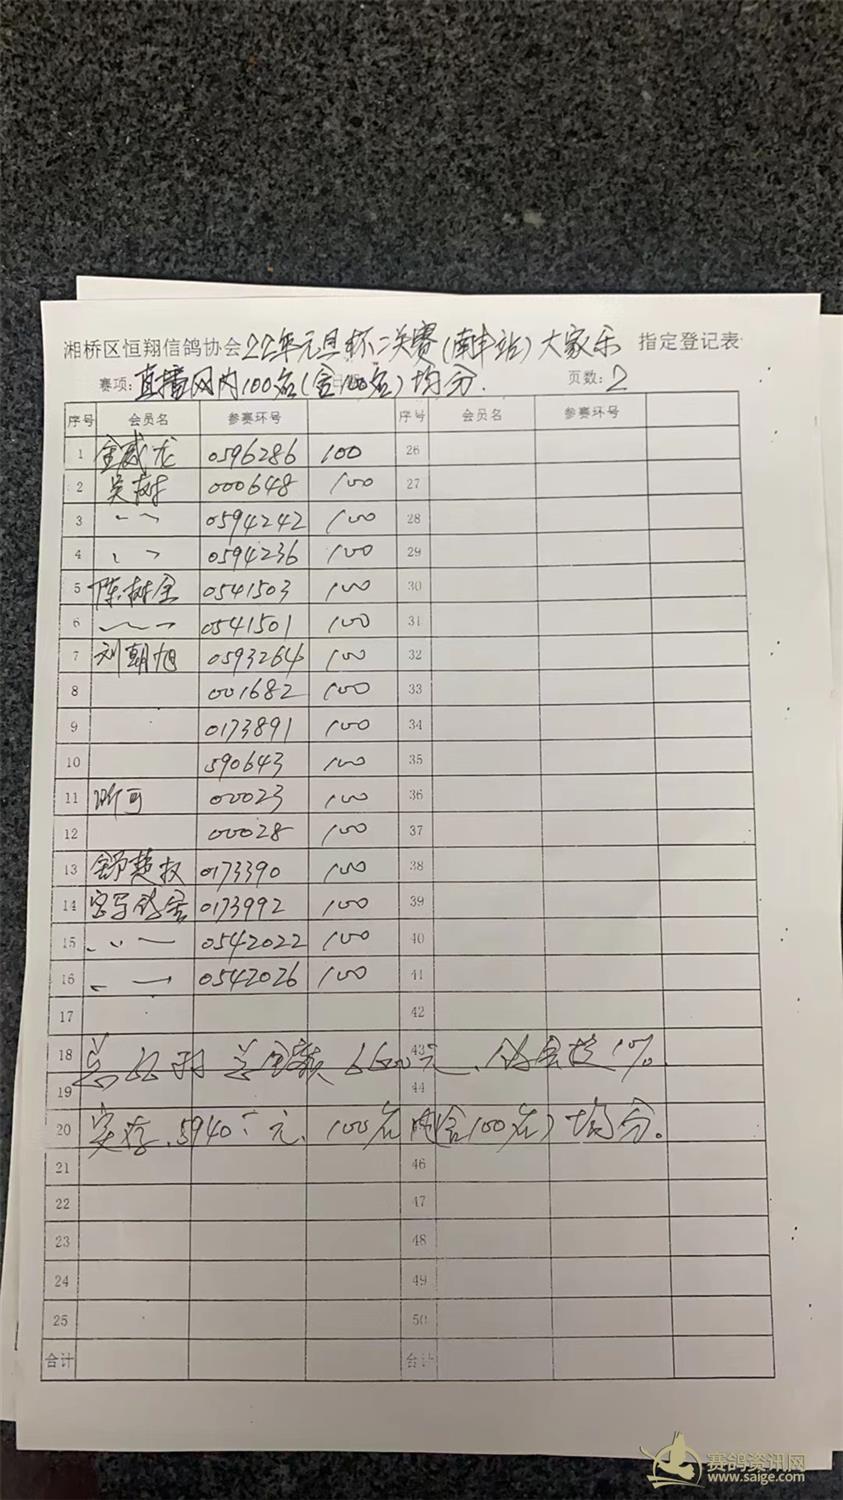 湘桥区恒翔信鸽协会22年元旦杯二关赛(南丰站)大家乐 指定登记表
赛项:直播网内100名(含100名)均分. 页数:2
序号 会员名 参赛环号 序号 会员名 参赛环号
1 金威龙 0596286 100 26
2 吴树 000648 100 27
3 0594242 100 28
4 0594236 100 29
5 陈树全 0541503 100 30
6 0541501 100 31
7 刘朝旭 0593264 100 32
8 001682 100 33
9 0173891 100 34
10 590643 100 35
11 00023 100 36
12 00028 100 37
13 0173390 100 38
14 0173992 100 39
15 0542022 100 40
16 0542026 100 41
17 42
18 总 羽 总金额 6600元、 10%. 43
19 44
20 实存.5940元.100名内(含100名)均分。
21 46
22 47
23 48
24 49
25 50
合计 合计
赛鸽资讯网
www.saige.com